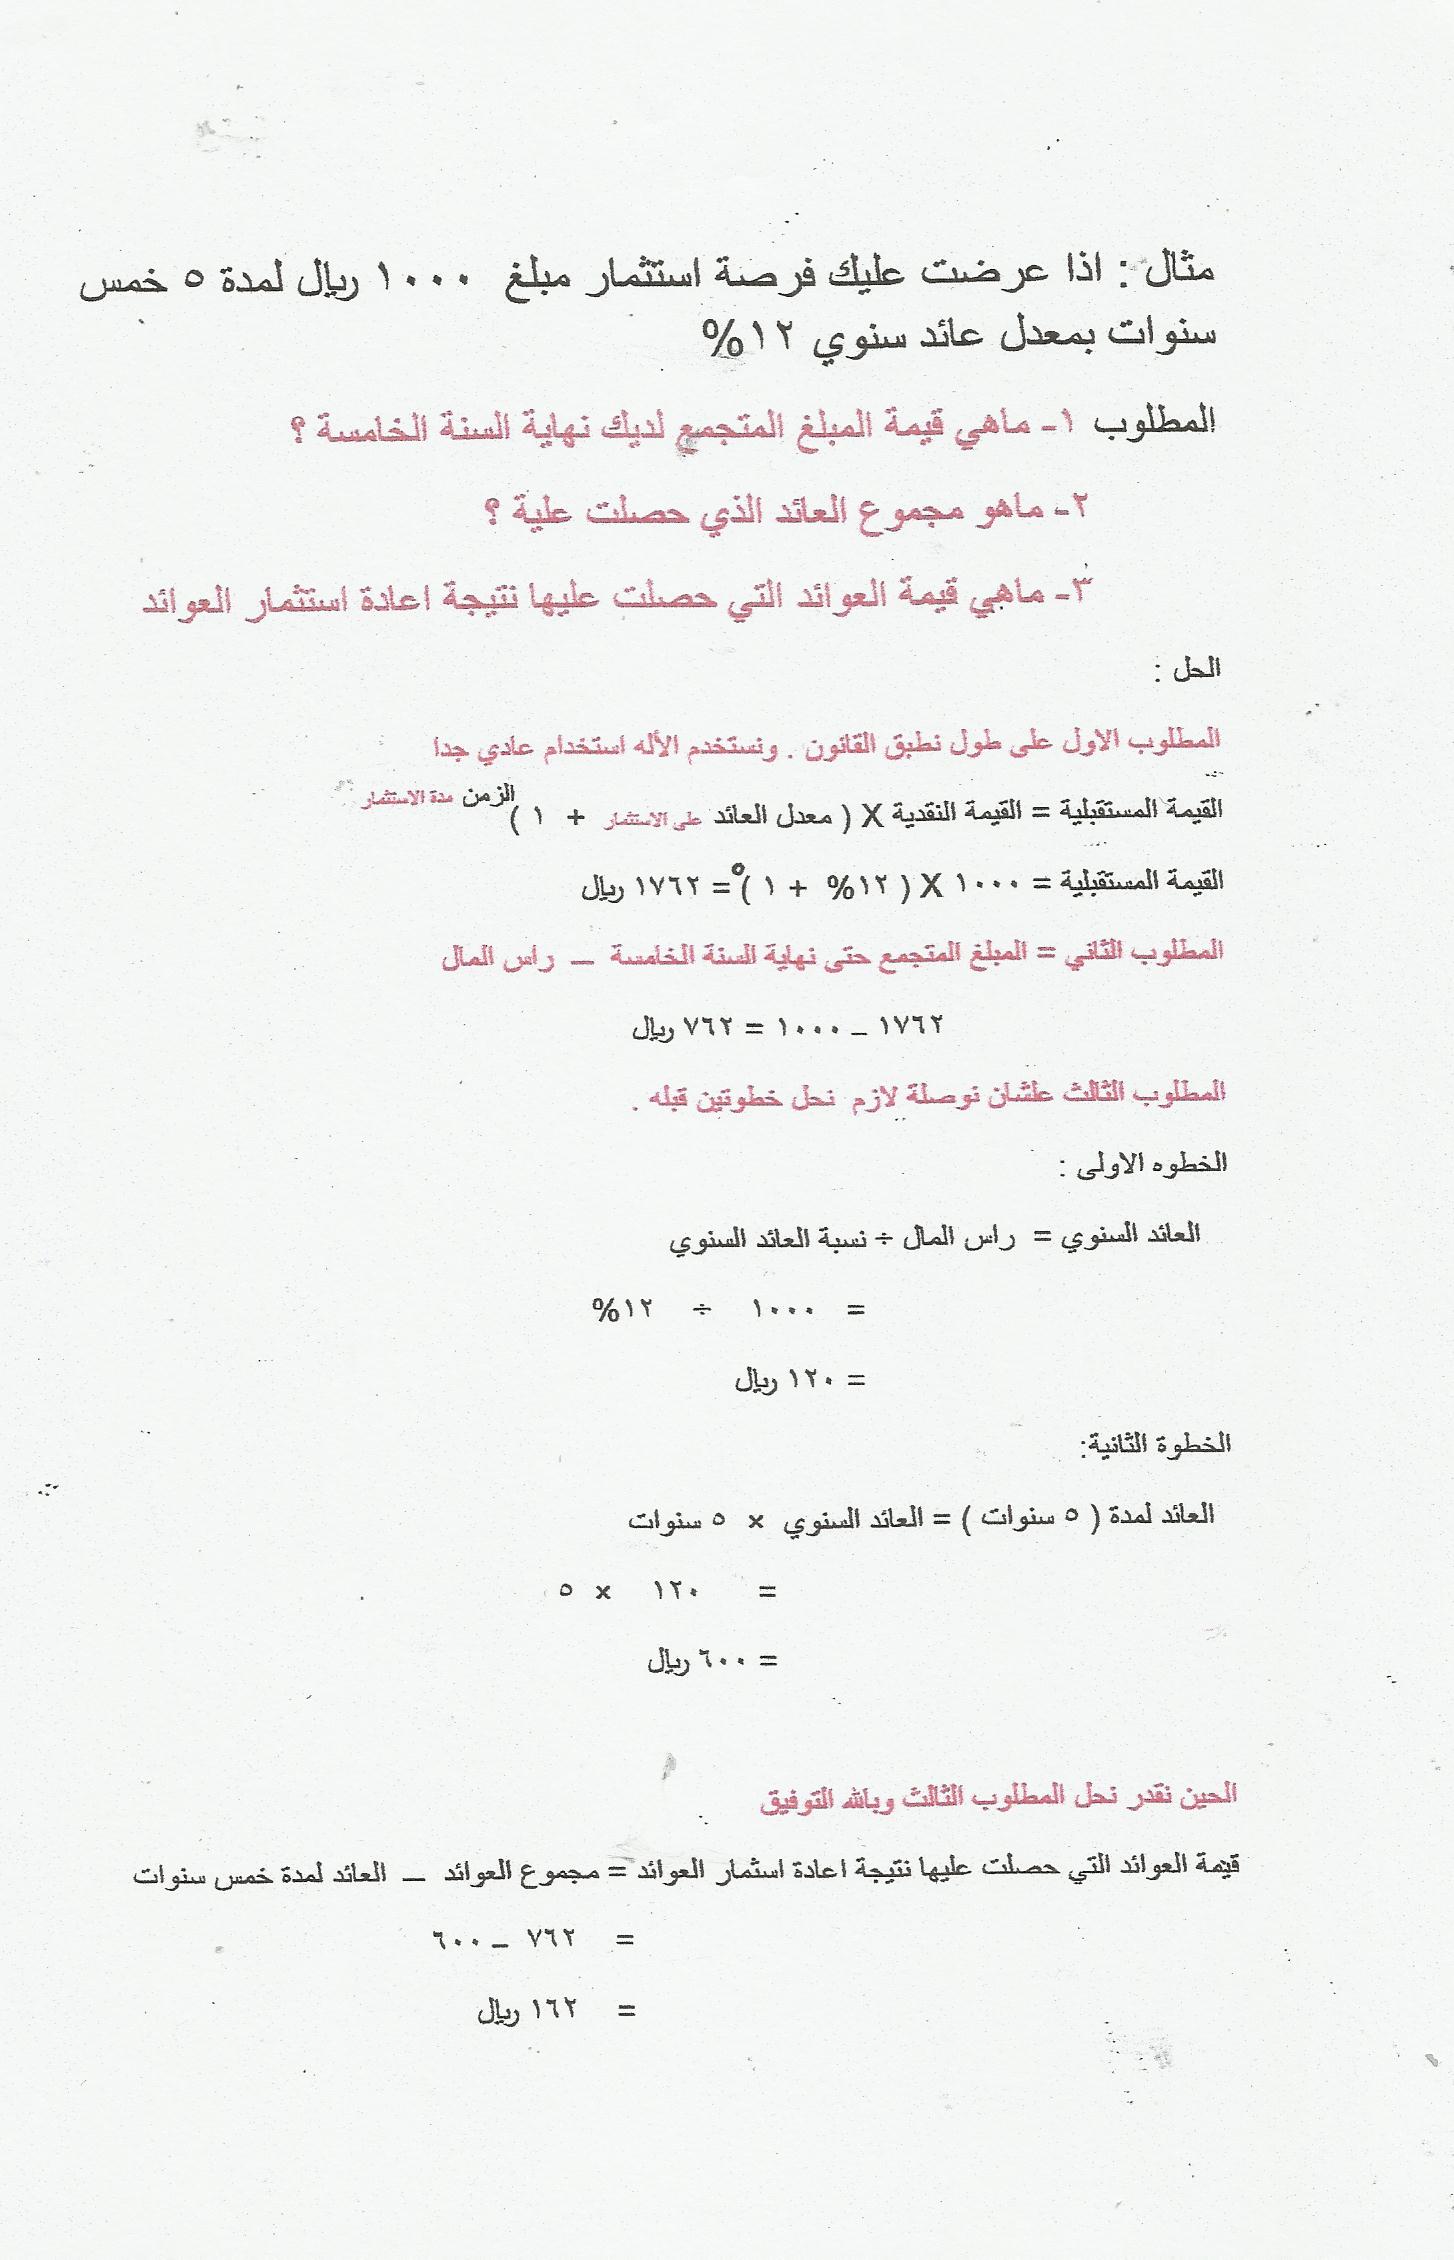 مثال : اذا عرضت عليك فرصة استثمار مبلغ ١٠٠٠ ريال لمدة ٥ خمس
سنوات بمعدل عائد سنوي ١٢%
المطلوب ١- ماهي قيمة المبلغ المتجمع لديك نهاية السنة الخامسة ؟
٢- ماهو مجموع العائد الذي حصلت علية ؟
٣- ماهي قيمة العوائد التي حصلت عليها نتيجة اعادة استثمار العوائد
الحل :
المطلوب الاول على طول نطبق القانون . ونستخدم الأله استخدام عادي جدا
القيمة المستقبلية = القيمة النقدية X ( معدل العائد على الاستثمار + ١ )الزمن مدة الاستثمار
القيمة المستقبلية = ١٠٠٠ X ( ١٢% + ١ )٥ = ١٧٦٢ ريال
المطلوب الثاني = المبلغ المتجمع حتى نهاية السنة الخامسة – راس المال
١٧٦٢ – ١٠٠٠ = ٧٦٢ ريال
المطلوب الثالث علشان نوصلة لازم نحل خطوتين قبله .
الخطوه الاولى :
العائد السنوي = راس المال ÷ نسبة العائد السنوي
= ١٠٠٠ ÷ ١٢%
= ١٢٠ ريال
الخطوة الثانية:
العائد لمدة ( ٥ سنوات ) = العائد السنوي × ٥ سنوات
= ١٢٠ × ٥
= ٦٠٠ ريال
الحين نقدر نحل المطلوب الثالث وبالله التوفيق
قيمة العوائد التي حصلت عليها نتيجة اعادة اسثمار العوائد = مجموع العوائد – العائد لمدة خمس سنوات
= ٧٦٢ – ٦٠٠
= ١٦٢ ريال